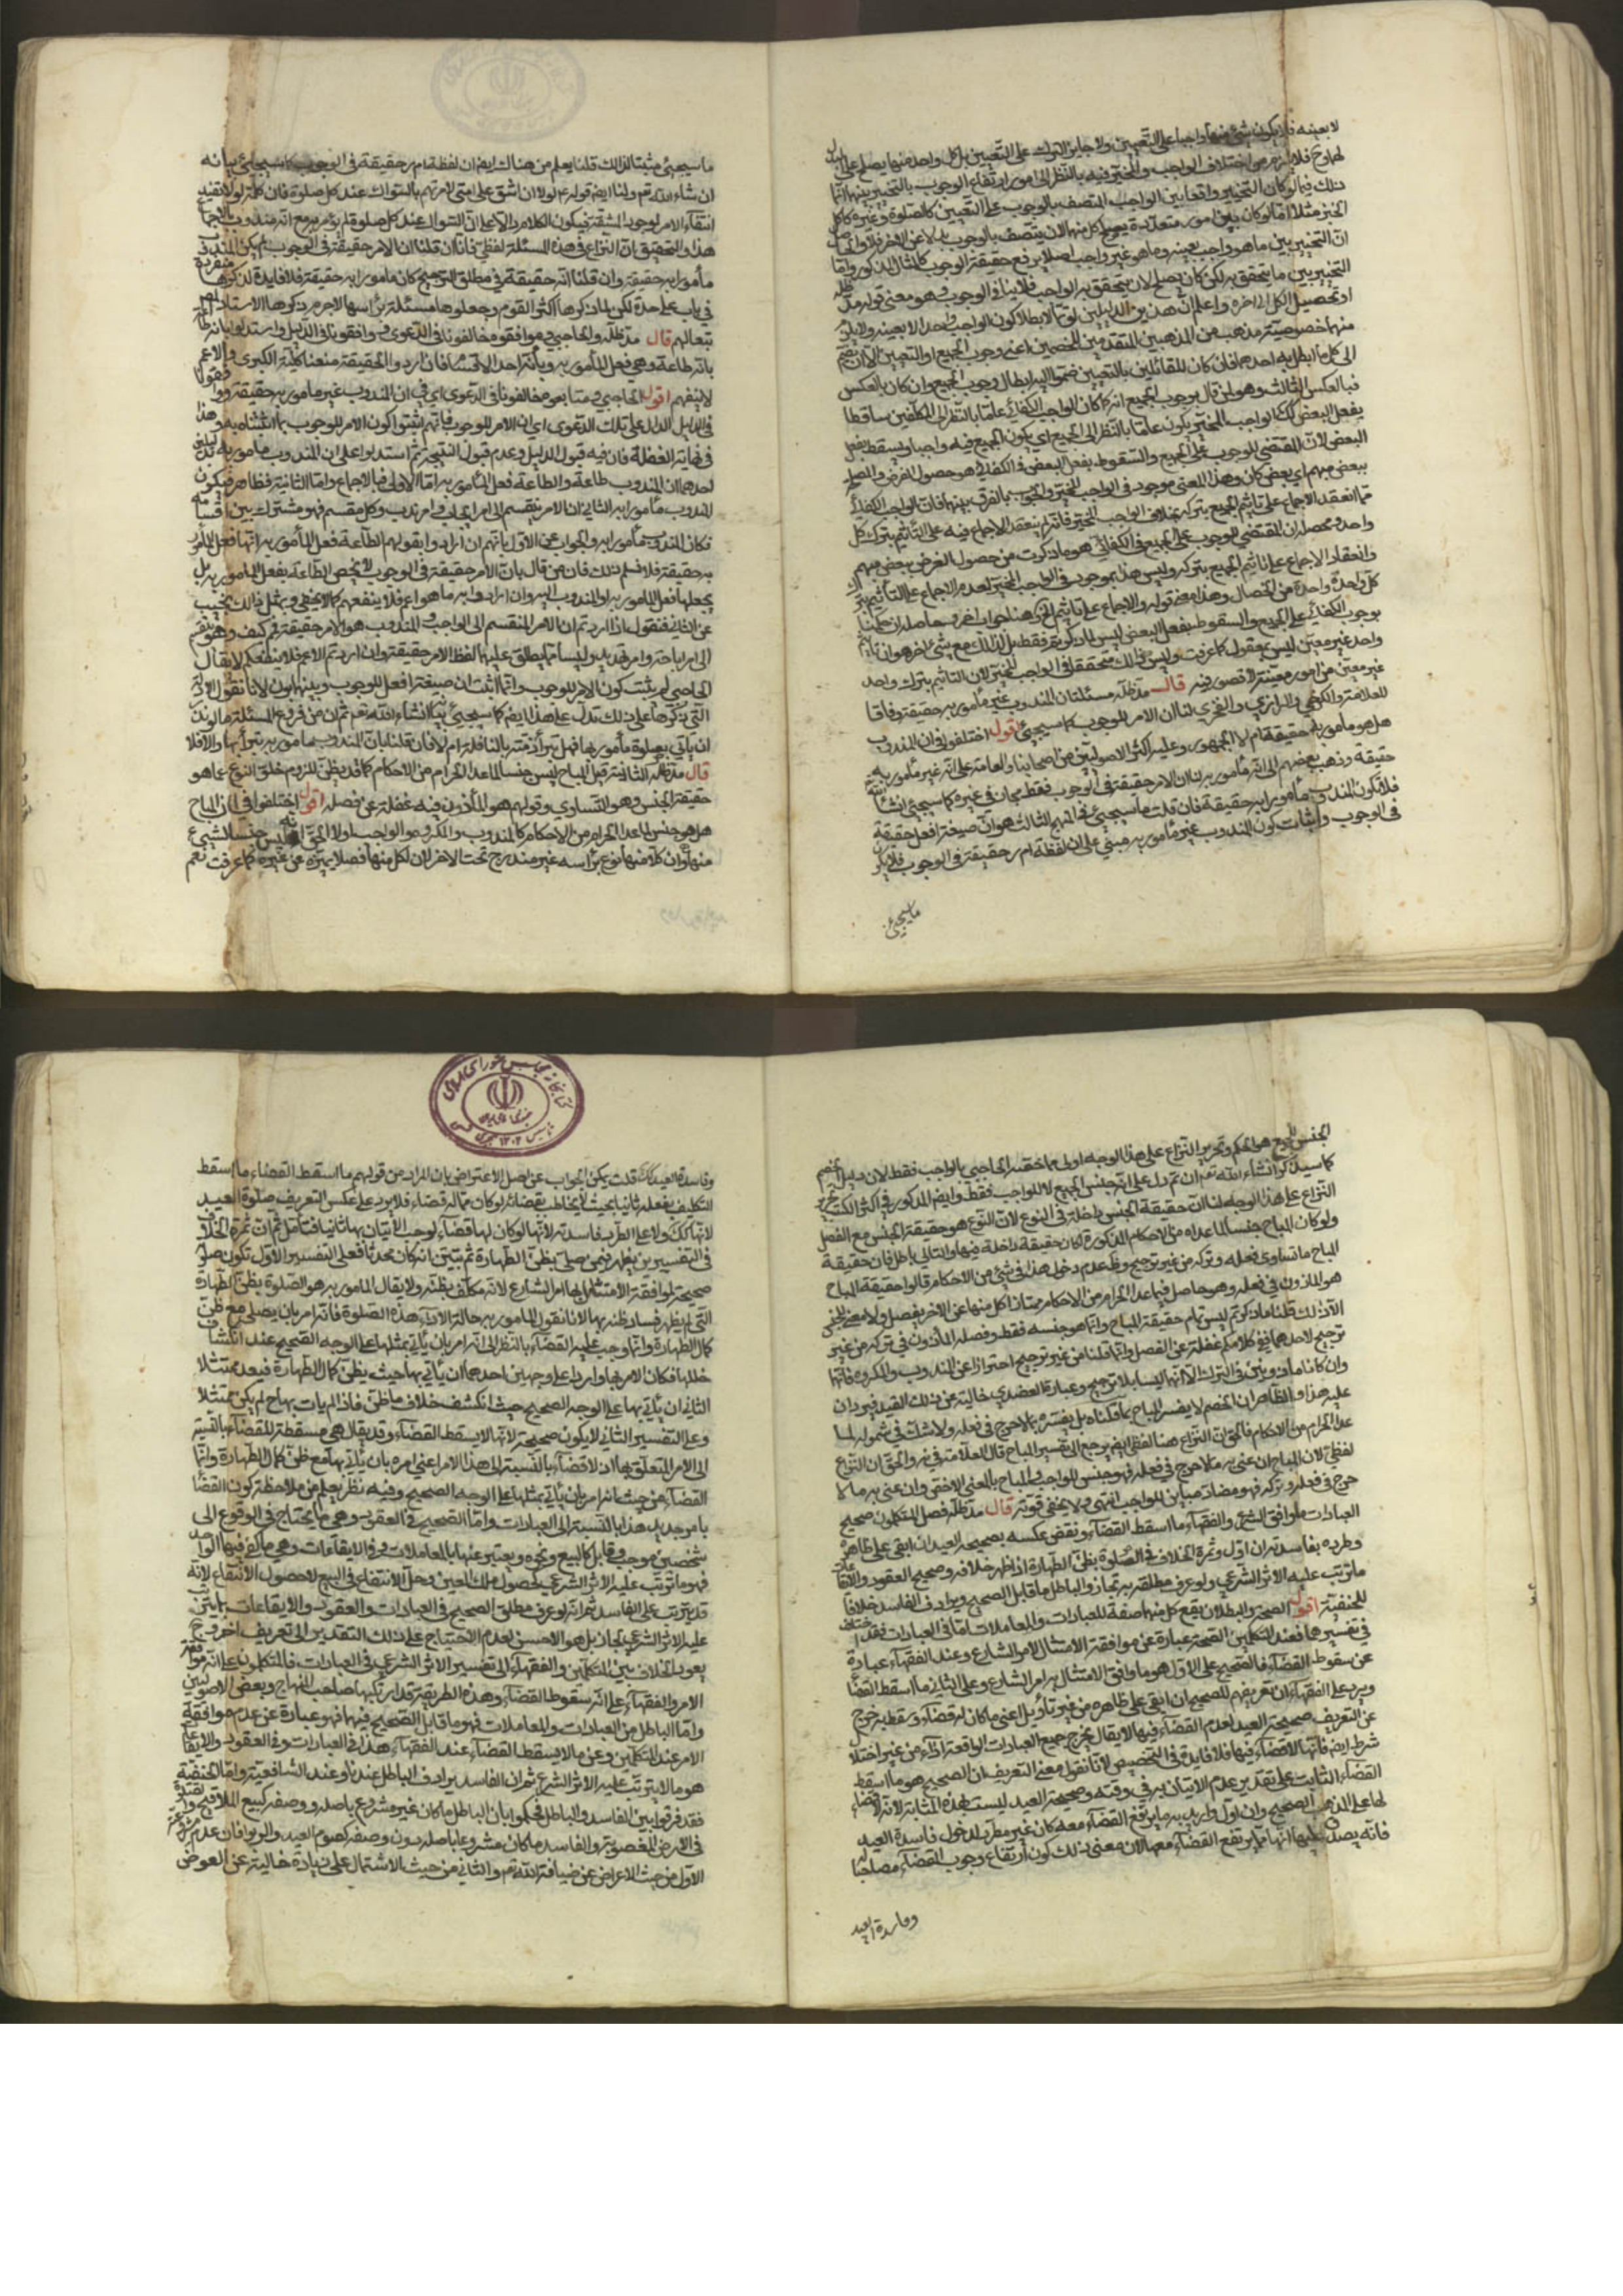 لا بعينه فلا يكون شئ منها واجبا على التعيين ولا جايز الترك على التعيين بل كل واحد منها يصلح على البدل
لهما وح فلا يلزم من اختلاف الواجب والمخير فيه بالنظر الى امور ارتفاع الوجوب بالتخيير بينهما انما
ذلك فيما لو كان التخيير واقعا بين الواجب المتصف بالوجوب على التعيين كالصلوة وغيره كاكل
الخبز مثلا اما لو كان بين امور متعددة يصلح كل منها لان يتصف بالوجوب بدلا عن الاخر فلا والحاصل
ان التخيير بين ما هو واجب بعينه وما هو غير واجب اصلا يرفع حقيقة الوجوب كالمثال المذكور واما
التخيير بين ما يتحقق به لكن كان يصلح لان يتحقق به الواجب فلا ينافى الوجوب وهو معنى قوله مد ظله
او تحصيل الكل الى اخره واعلم ان هذين الدليلين لو تما لابطلا كون الواجب واحدا لا بعينه ولا يلزم
منهما خصوصية مذهب من المذهبين المتقدمين للخصمين اعنى وجوب الجميع او التعيين الا ان يضم
الى كل ما ابطل به احدهما فان كان للقائلين بالتعيين ضموا اليه ابطال وجوب الجميع وان كان بالعكس
فبالعكس الثالث وهو لمن قال بوجوب الجميع انه كما كان الواجب الكفائى عاما بالنظر الى المكلفين ساقطا
بفعل البعض كذلك الواجب المخير يكون عاما بالنظر الى الجميع اى يكون الجميع فيه واجبا ويسقط بفعل
البعض لان المقتضى للوجوب على الجميع والسقوط بفعل البعض فى الكفائى هو حصول الغرض والمصلحة
ببعض مبهم اى بعض كان وهذا المعنى موجود فى الواجب المخير والجواب بالفرق بينهما فان الواجب الكفائى
مما انعقد الاجماع على تاثيم الجميع بتركه بخلاف الواجب المخير فانه لم ينعقد الاجماع فيه على التاثيم بترك كل
واحد ومحصله ان المقتضى للوجوب على الجميع فى الكفائى هو ما ذكرت من حصول الغرض ببعض مبهم
وانعقاد الاجماع على تاثيم الجميع بتركه وليس هذا بموجود فى الواجب المخير لعدم الاجماع على التاثيم بترك
كل واحد واحدة من الخصال وهذا معنى قوله والاجماع على تاثيم الكل وهنا جواب اخر وحاصله ان حكمنا
بوجوب الكفائى على الجميع والسقوط بفعل البعض ليس لما ذكرتم فقط بل لذلك مع شئ اخر هو ان تاثيم
واحد غير معين ليس بمعقول كما عرفت وليس ذلك متحققا فى الواجب المخير لان التاثيم بترك واحد
غير معين من امور معينة لا قصور فيه قال مد ظله مسئلتان المندوب غير مأمور به حقيقة وفاقا
للعلامة والكرخى والرازى والفخرى لنا ان الامر للوجوب كما سيجيئ اقول اختلفوا فى ان المندوب
هل هو مأمور به حقيقة ام لا الجمهور وعليه اكثر الاصوليين من اصحابنا والعامة على انه غير مأمور به
حقيقة وذهب بعضهم الى انه مأمور به لنا ان الامر حقيقة فى الوجوب فقط مجاز فى غيره كما سيجيئ انشاء الله
فلا يكون المندوب مأمورا به حقيقة فان قلت ما سيجيئ فى المنهج الثالث هو ان صيغة افعل حقيقة
فى الوجوب واثبات كون المندوب غير مأمور به مبنى على ان لفظة ام ر حقيقة فى الوجوب فلا يكون
ما سيجيئ
ما سيجيئ مثبتا لذلك قلنا يعلم من هناك ايضا ان لفظة ام ر حقيقة فى الوجوب كما سيجيئ بيانه
ان شاء الله تعم ولنا ايضا قوله ع لولا ان اشق على امتى لامرتهم بالسواك عند كل صلوة فان كلمة لولا تفيد
انتفاء الامر لوجود المشقة فيكون الكلام دالا على ان السواك عند كل صلوة لم يؤمر به مع انه مندوب بالاجماع
هذا والتحقيق بان النزاع فى هذه المسئلة لفظى فانا ان قلنا ان الامر حقيقة فى الوجوب لم يكن المندوب
مأمورا به حقيقة وان قلنا انه حقيقة فى مطلق الترجيح كان مأمورا به حقيقة فلا فايدة لذكرها منفردة
فى باب على حدة لكن لما ذكرها اكثر القوم وجعلوها مسئلة برأسها لاجرم ذكرها الاستاد
تبعا لهم قال مد ظله والحاجبى وموافقوه خالفونا فى الدعوى ووافقونا فى الدليل واستدلوا
بانه طاعة وهى فعل المأمور به وبانه احد الاقسام فان ارادوا الحقيقة منعنا كلية الكبرى والاعم
لا ينفعهم اقول الحاجبى ومتابعوه خالفونا فى الدعوى اى فى ان المندوب غير مأمور به حقيقة ووافقونا
فى الدليل الدال على تلك الدعوى اى ان الامر للوجوب فانهم اثبتوا كون الامر للوجوب بما اثبتناه به وهذا
فى غاية الغفلة فان فيه قبول الدليل وعدم قبول النتيجة ثم استدلوا على ان المندوب مأمور به بدليلين
احدهما ان المندوب طاعة والطاعة فعل المأمور به اما الاولى فبالاجماع واما الثانية فظاهر فيكون
المندوب مأمورا به الثانى ان الامر ينقسم الى امر ايجاب وامر ندب وكل مقسم فهو مشترك بين اقسامه
فكان المندوب مأمورا به والجواب عن الاول بانهم ان ارادوا بقولهم الطاعة فعل المأمور به انها فعل المأمور
به حقيقة فلا نسلم ذلك فان من قال بان الامر حقيقة فى الوجوب لا يخص الطاعة بفعل المأمور به بل
يجعلها فعل المأمور به او المندوب اليه وان ارادوا به ما هو اعم فلا ينفعهم كما لا يخفى وبمثل ذلك نجيب
عن الثانى فنقول ماذا اردتم ان الامر المنقسم الى الواجب والمندوب هو الامر حقيقة فم كيف وهو ينقسم
الى امر اباحة وامر تهديد وليسا مما يطلق عليهما لفظ الامر حقيقة وان اردتم الاعم فلا ينفعكم لا يقال
الحاجبى لم يثبت كون الامر للوجوب وانما اثبت ان صيغة افعل للوجوب وبينهما بون لانا نقول الادلة
التى ذكرها على ذلك تدل على هذا ايضا كما سيجيئ بيانه انشاء الله تعم ثم ان من فروع المسئلة ما لو نذر
ان يأتى بصلوة مأمور بها فهل تبرأ ذمته بالنافلة ام لا فان قلنا بان المندوب مأمور به تبرأ بها والا فلا
قال مد ظله الثانية قيل المباح ليس جنسا لما عدا الحرام من الاحكام كما قد يظن للزوم خلو النوع عما هو
حقيقة الجنس وهو التساوى وقولهم هو المأذون فيه غفلة عن فصله اقول اختلفوا فى ان المباح
هل هو جنس لما عدا الحرام من الاحكام كالمندوب والمكروه والواجب اولا الحق انه ليس جنسا لشيئ
منها وان كلا منها نوع برأسه غير مندرج تحت الاخر لان لكل منها فصلا يميزه عن غيره كما عرفت نعم
الجنس للجميع هو الحكم وتحرير النزاع على هذا الوجه اولى مما خصه الحاجبى بالواجب فقط لان دليل الخصم
كما سيذكر انشاء الله تعم ان تم دل على انه جنس الجميع لا للواجب فقط وايضا المذكور فى اكثر الكتب تحرير
النزاع على هذا الوجه لنا ان حقيقة الجنس داخلة فى النوع لان النوع هو حقيقة الجنس مع الفصل
ولو كان المباح جنسا لما عداه من الاحكام المذكورة لكان حقيقة داخلة فيها والتالى باطل فان حقيقة
المباح ما تساوى فعله وتركه من غير ترجيح وظ عدم دخول هذا فى شئ من الاحكام قالوا حقيقة المباح
هو المأذون فى فعله وهو حاصل فيما عدا الحرام من الاحكام ممتازا كل منها عن الاخر بفصل ولا معنى للجنس
الا ذلك قلنا ما ذكرتم ليس تمام حقيقة المباح وانما هو جنسه فقط وفصله المأذون فى تركه من غير
ترجيح لاحدهما ففى كلامكم غفلة عن الفصل وانما قلنا من غير ترجيح احترازا عن المندوب والمكروه فانهما
وان كانا مأذونين فى الترك الا انهما ليسا بلا ترجيح وعبارة العضدى خالية عن ذلك القيد فيرد ان
عليه هذا والظاهر ان الخصم لا يفسر المباح بما قلناه بل يفسره بما لا حرج فى فعله ولا شك فى شموله لما
عدا الحرام من الاحكام فالحق ان النزاع هنا لفظى ايضا يرجع الى تفسير المباح قال العلامة فى يه والحق ان النزاع
لفظى لان المباح ان عنى به ما لا حرج فى فعله فهو جنس للواجب والمباح بالمعنى الاخص وان عنى به ما لا
حرج فى فعله وتركه فهو مضاد مباين للواجب انتهى ولا يخفى قوته قال مد ظله فصل المتكلمون صحيح
العبادات ما وافق الشرع والفقهاء ما اسقط القضاء ونقض عكسه بصحيحة العيد ان ابقى على ظاهره
وطرده بفاسدته ان اول وثمرة الخلاف فى الصلوة بظن الطهارة اذا ظهر خلافه وصحيح العقود والايقاعات
ما ترتب عليه الاثر الشرعى ولو عرف مطلقه به لجاز والباطل ما قابل الصحيح ويرادف الفاسد خلافا
للحنفية اقول الصحة والبطلان يقع كل منهما صفة للعبادات والمعاملات اما فى العبادات فقد اختلف
فى تفسيرهما فعند المتكلمين الصحة عبارة عن موافقة الامتثال لامر الشارع وعند الفقهاء عبارة
عن سقوط القضاء فالصحيح على الاول هو ما وافق الامتثال به امر الشارع وعلى الثانى ما اسقط القضاء
ويرد على الفقهاء ان تعريفهم للصحيح ان ابقى على ظاهره من غير تأويل اعنى ما كان له قضاء وسقط به خرج
عن التعريف صحيحة العيد لعدم القضاء فيها لا يقال يخرج جميع العبادات الواقعة اداء من غير اختلال
شرط ايضا فانها لا قضاء فيها فلا فايدة فى التخصيص لانا نقول معنى التعريف ان الصحيح هو ما اسقط
القضاء الثابت على تقدير عدم الاتيان به فى وقته وصحيحة العيد ليست بهذه المثابة لانه لا قضاء
لها على المذهب الصحيح وان اول واريد به ما يرتفع القضاء معه كان غير مطرد لدخول فاسدة العيد
فانه يصدق عليها انها مما يرتفع القضاء معها لان معنى ذلك كون ارتفاع وجوب القضاء مصاحبا
وفاسدة العيد
وفاسدة العيد كذلك قلت يمكن الجواب عن اصل الاعتراض بان المراد من قولهم ما اسقط القضاء ما اسقط
التكليف بفعله ثانيا بحيث لا يخاطب بقضائه لو كان مما له قضاء فلا يرد على عكس التعريف صلوة العيد
لانها كك ولا على الطرد فاسدته لانها لو كان لها قضاء لوجب الاتيان بها ثانيا فتأمل ثم ان ثمرة الخلاف
فى التفسيرين يظهر فيمن صلى بظن الطهارة ثم تبين انه كان محدثا فعلى التفسير الاول تكون صلوته
صحيحة لموافقة الامتثال بها امر الشارع لانه مكلف بظنه ولا يقال المأمور به هو الصلوة بظن الطهارة
التى لم يظهر فساد ظنه بها لانا نقول المأمور به حالة الاداء هذه الصلوة فانه امر بان يصلى مع ظن
كمال الطهارة وانما وجب عليه القضاء بالنظر الى انه امر بان يأتى بمثلها على الوجه الصحيح عند انكشاف
خللها فكان الامر بها واردا على وجهين احدهما ان يأتى بها حيث يظن كمال الطهارة فيعد ممتثلا
الثانى ان يأتى بها على الوجه الصحيح حيث انكشف خلاف ما ظن فاذا لم يات بها ح لم يكن ممتثلا
وعلى التفسير الثانى لا يكون صحيحة لانها لا يسقط القضاء وقد يقال هى مسقطة للقضاء بالنسبة
الى الامر المتعلق بها اذ لا قضاء بالنسبة الى هذا الامر اعنى امره بان يأتى بها مع ظن كمال الطهارة وانما
القضاء من حيث انه امر بان يأتى بمثلها على الوجه الصحيح وفيه نظر يعلم من ملاحظة كون القضاء
بامر جديد هذا بالنسبة الى العبادات واما الصحيح فى العقود وهى ما يحتاج فى الوقوع الى
شخصين موجب وقابل كالبيع ونحوه ويعتبر عنها بالمعاملات وفى الايقاعات وهى ما يكفى فيها الواحد
فهو ما ترتب عليه الاثر الشرعى كحصول ملك العين وحل الانتفاع فى البيع لا حصول الانتفاع لانه
قد يترتب على الفاسد ثم انه لو عرف مطلق الصحيح فى العبادات والعقود والايقاعات بما يترتب
عليه الاثر الشرعى لجاز بل هو الاحسن لعدم الاحتياج على ذلك التقدير الى تعريف اخر وح
يعود الخلاف بين المتكلمين والفقهاء الى تفسير الاثر الشرعى فى العبادات فالمتكلمون على انه موافقة
الامر والفقهاء على انه سقوط القضاء وهذه الطريقة قد ارتكبها صاحب المنهاج وبعض الاصوليين
واما الباطل من العبادات والمعاملات فهو ما قابل الصحيح فيهما فهو عبارة عن عدم موافقة
الامر عند المتكلمين وعن ما لا يسقط القضاء عند الفقهاء هذا فى العبادات وفى العقود والايقاعات
هو ما لا يترتب عليه الاثر الشرعى ثم ان الفاسد يرادف الباطل عندنا وعند الشافعية واما الحنفية
فقد فرقوا بين الفاسد والباطل فحكموا بان الباطل ما كان غير مشروع باصله ووصفه كبيع الملاقيح
فى الارض المغصوبة والفاسد ما كان مشروعا باصله دون وصفه كصوم العيد والربوا فان عدم
الاول من حيث الاعراض عن ضيافة الله تعم والثانى من حيث الاشتمال على زيادة خالية عن العوض